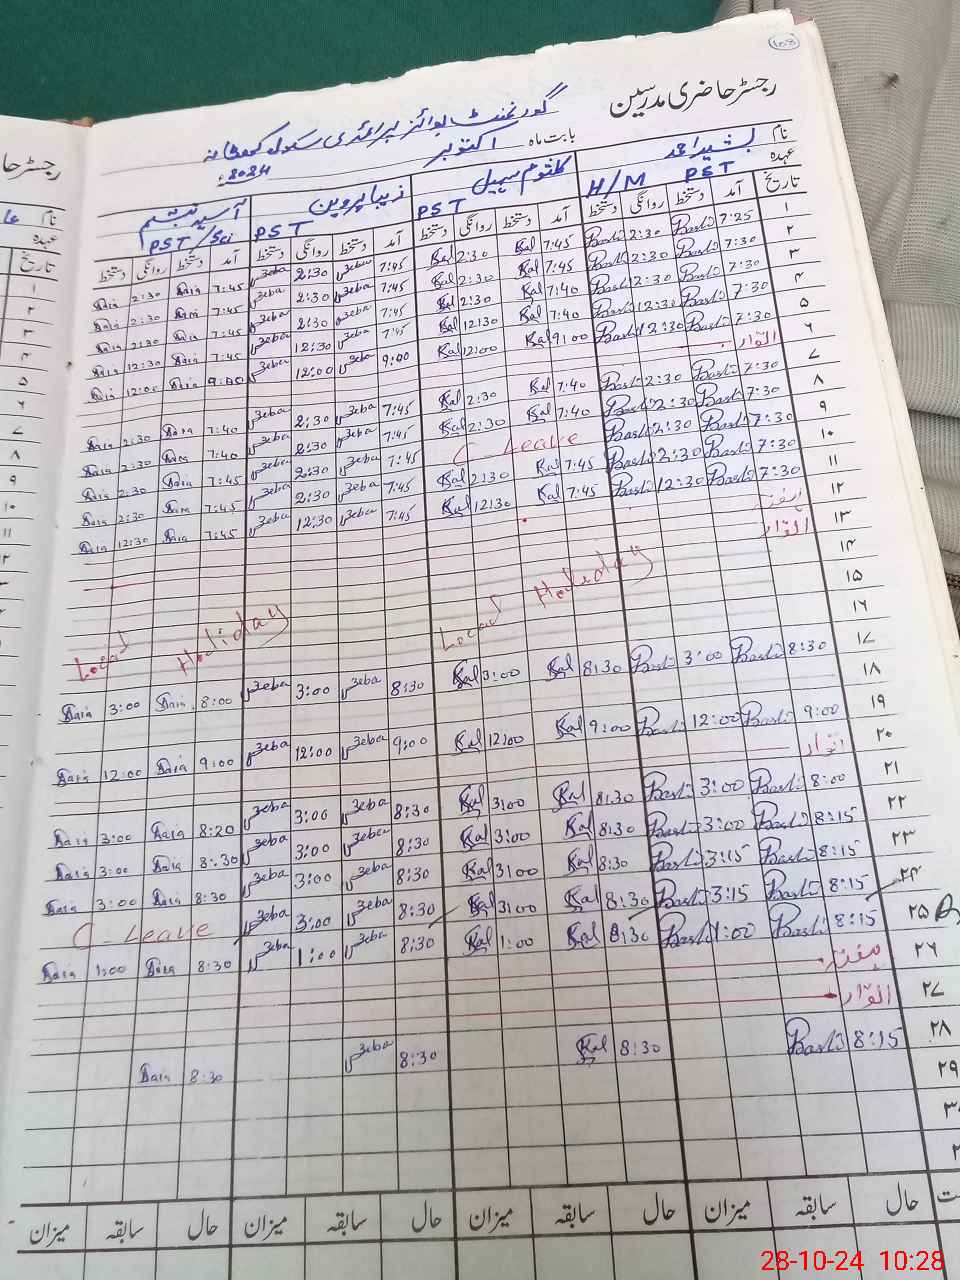 103
رجسٹر حاضری مدرسین
گورنمنٹ بوائز پرائمری سکول
بابت ماہ اکتوبر 2024ء
نام بشیر احمد کلثوم سہیل زیبا پروین آسیہ تبسم
عہدہ H/M PST PST PST PST/Sci
تاریخ آمد دستخط روانگی دستخط آمد دستخط روانگی دستخط آمد دستخط روانگی دستخط آمد دستخط روانگی دستخط
۱ 7:25 Bashir 2:30 Bashir 7:45 Kal 2:30 Kal 7:45 Zeba 2:30 Zeba 7:45 Asia 2:30 Asia
۲ 7:30 Bashir 2:30 Bashir 7:45 Kal 2:30 Kal 7:45 Zeba 2:30 Zeba 7:45 Asia 2:30 Asia
۳ 7:30 Bashir 2:30 Bashir 7:40 Kal 2:30 Kal 7:45 Zeba 2:30 Zeba 7:45 Asia 2:30 Asia
۴ 7:30 Bashir 12:30 Bashir 7:40 Kal 12:30 Kal 7:45 Zeba 12:30 Zeba 7:45 Asia 12:30 Asia
۵ 7:30 Bashir 12:30 Bashir 9:00 Kal 12:00 Kal 9:00 Zeba 12:00 Zeba 9:00 Asia 12:00 Asia
۶ اتوار
۷ 7:30 Bashir 2:30 Bashir 7:40 Kal 2:30 Kal 7:45 Zeba 2:30 Zeba 7:40 Asia 2:30 Asia
۸ 7:30 Bashir 2:30 Bashir 7:40 Kal 2:30 Kal 7:45 Zeba 2:30 Zeba 7:40 Asia 2:30 Asia
۹ 7:30 Bashir 2:30 Bashir C-Leave 7:45 Zeba 2:30 Zeba 7:45 Asia 2:30 Asia
۱۰ 7:30 Bashir 2:30 Bashir 7:45 Kal 2:30 Kal 7:45 Zeba 2:30 Zeba 7:45 Asia 2:30 Asia
۱۱ 7:30 Bashir 12:30 Bashir 7:45 Kal 12:30 Kal 7:45 Zeba 12:30 Zeba 7:45 Asia 12:30 Asia
۱۲ ہفتہ
۱۳ اتوار
۱۴
۱۵ Local Holiday Local Holiday
۱۶
۱۷ 8:30 Bashir 3:00 Bashir 8:30 Kal 3:00 Kal 8:30 Zeba 3:00 Zeba 8:00 Asia 3:00 Asia
۱۸
۱۹ 9:00 Bashir 12:00 Bashir 9:00 Kal 12:00 Kal 9:00 Zeba 12:00 Zeba 9:00 Asia 12:00 Asia
۲۰ اتوار
۲۱ 8:00 Bashir 3:00 Bashir 8:30 Kal 3:00 Kal 8:30 Zeba 3:00 Zeba 8:20 Asia 3:00 Asia
۲۲ 8:15 Bashir 3:00 Bashir 8:30 Kal 3:00 Kal 8:30 Zeba 3:00 Zeba 8:30 Asia 3:00 Asia
۲۳ 8:15 Bashir 3:15 Bashir 8:30 Kal 3:00 Kal 8:30 Zeba 3:00 Zeba 8:30 Asia 3:00 Asia
۲۴ 8:15 Bashir 3:15 Bashir 8:30 Kal 3:00 Kal 8:30 Zeba 3:00 Zeba C-Leave
۲۵ 8:15 Bashir 1:00 Bashir 8:30 Kal 1:00 Kal 8:30 Zeba 1:00 Zeba 8:30 Asia 1:00 Asia
۲۶ ہفتہ
۲۷ اتوار
۲۸ 8:15 Bashir 8:30 Kal 8:30 Zeba 8:30 Asia
۲۹
۳۰
حال سابقہ میزان حال سابقہ میزان حال سابقہ میزان حال سابقہ میزان
28-10-24 10:28
رجسٹر حا
نام
عہدہ
تاریخ
۱
۲
۳
۴
۵
۶
۷
۸
۹
۱۰
۱۱